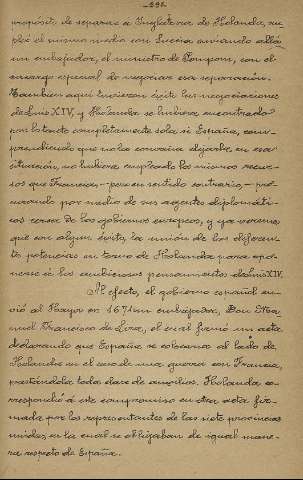 propósito de separar á Inglaterra de Holanda, em
pleó el mismo medio con Suecia enviando allá
un embajador, el ministro de Pompone, con el
encargo especial de negociar esa separación.
Tambien aquí tuvieron éxito las negociaciones
de Luis XIV, y Holanda se hubiera encontrado
por lo tanto completamente sola si España, com-
prendiendo que no la convenía dejarla en esa
situación, no hubiera empleado los mismos recur-
sos que Francia, - pero en sentido contrario, - pro-
curando por medio de sus agentes diplomáti-
cos cerca de los gobiernos europeos, y ya veremos
que con algun éxito, la unión de las diferen-
tes potencias en torno de Holanda para opo-
nerse á los ambiciosos pensamientos de Luis XIV.
Al efecto, el gobierno español en-
vió al Haya en 1671 un embajador, Don Ma-
nuel Francisco de Lira, el cual firmó un acta
declarando que España se pondría al lado de
Holanda en el caso de una guerra con Francia,
prestándola toda clase de auxilios. Holanda co-
rrespondió á este compromiso en otra acta fir-
mada por los representantes de las siete provincias
unidas, en la cual se obligaban de igual mane-
ra respecto de España.